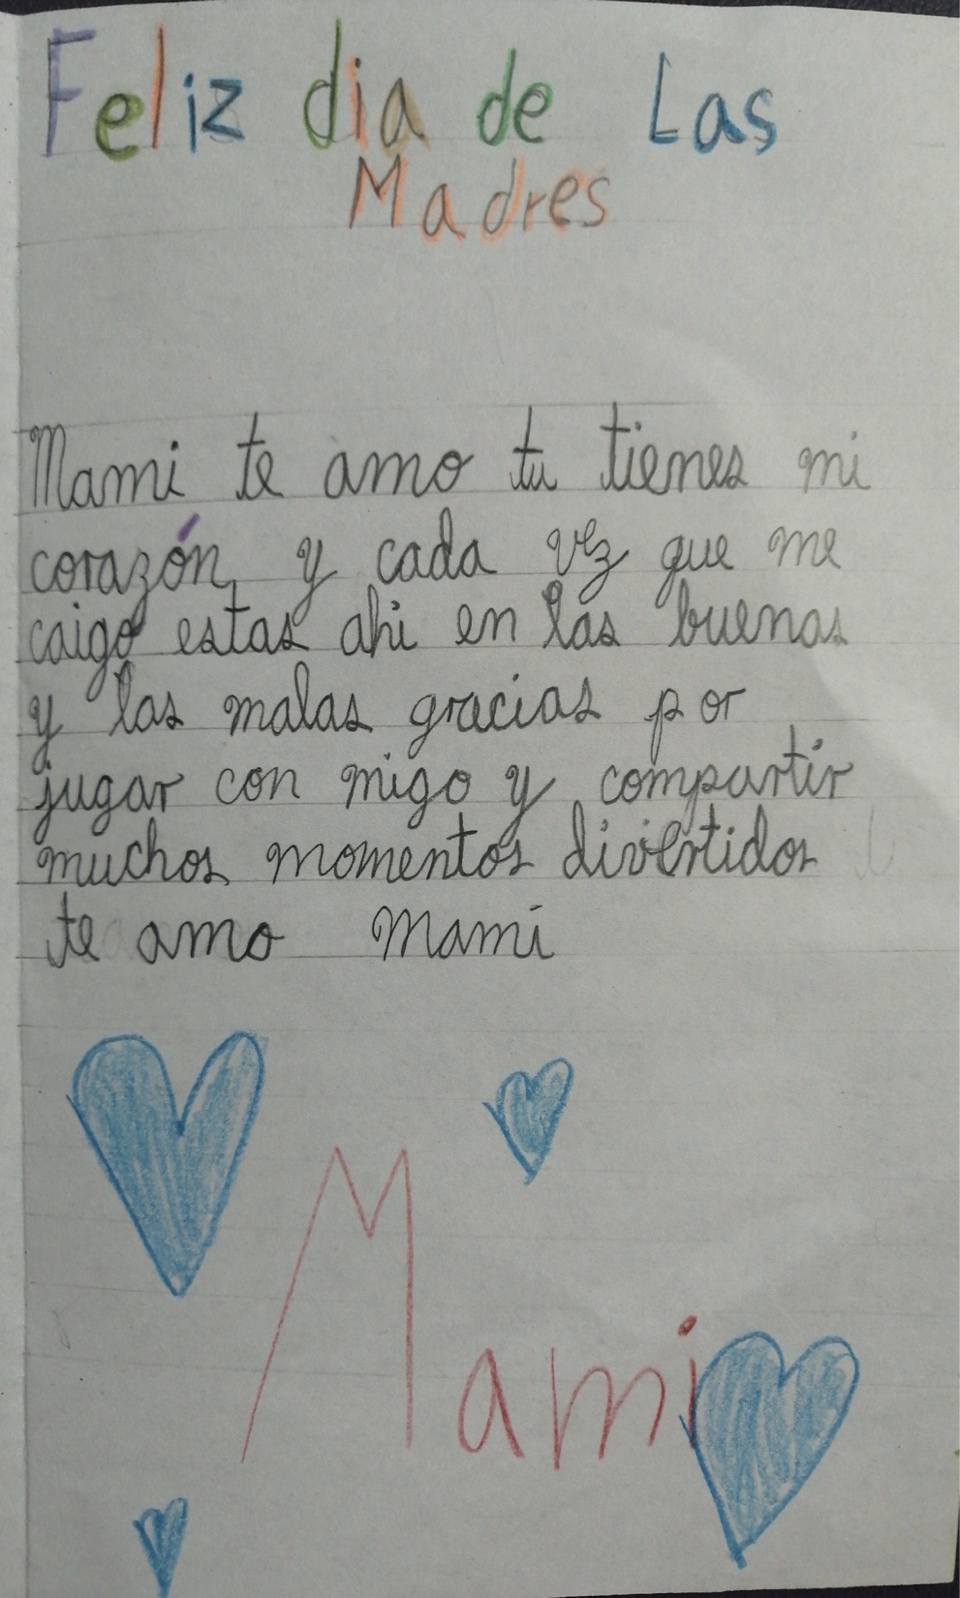 Feliz dia de Las
Madres
Mami te amo tu tienes mi
corazón y cada vez que me
caigo estas ahi en las buenas
y las malas gracias por
jugar con migo y compartir
muchos momentos divertidos
te amo Mami
Mami